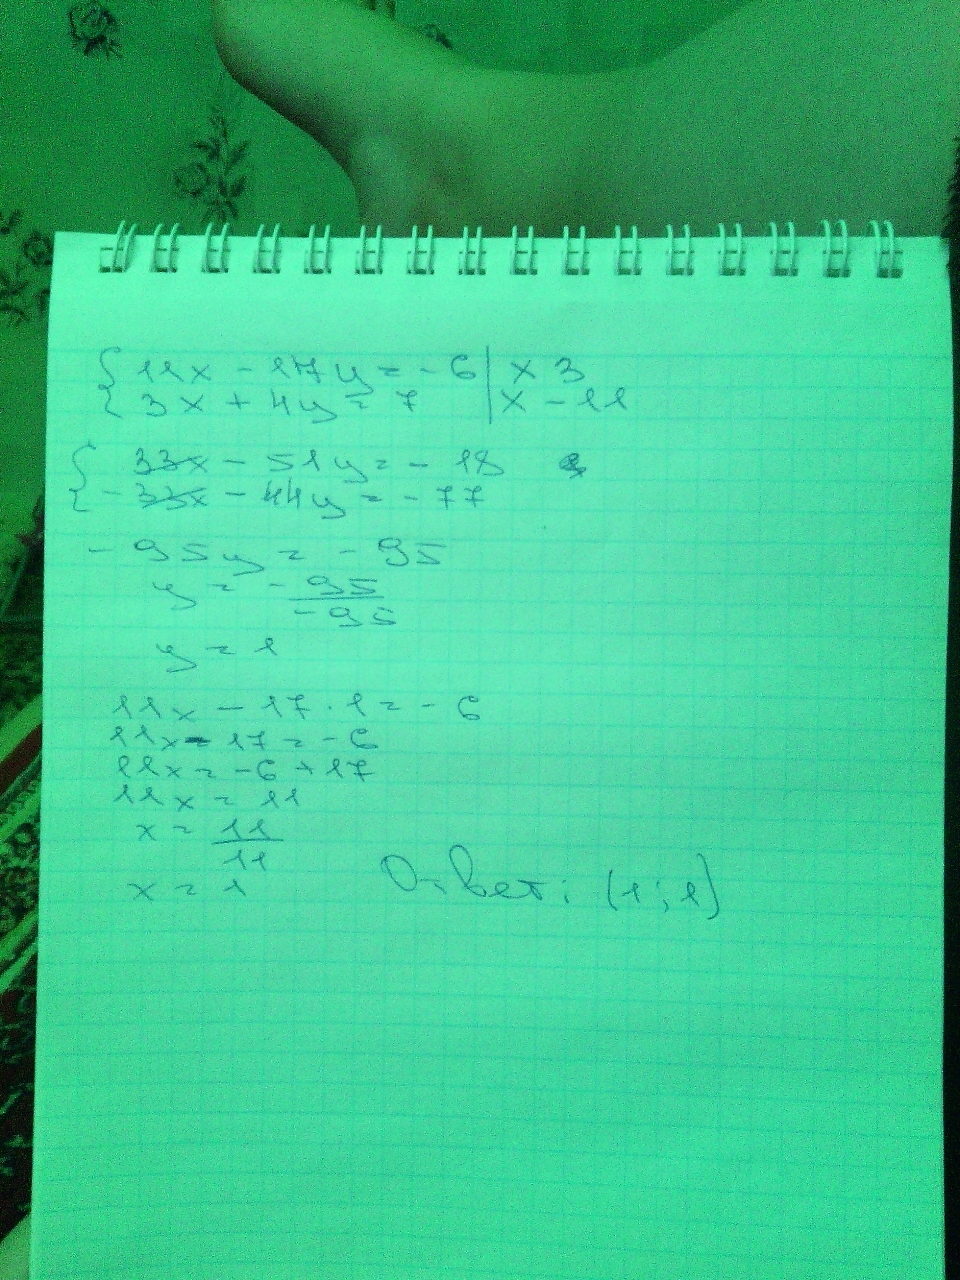 { 11x - 17y = - 6 | x 3
{ 3x + 4y = 7 | x - 11
{ 33x - 51y = - 18
{ - 33x - 44y = - 77
- 95y = - 95
y = - 95
- 95
y = 1
11x - 17 . 1 = - 6
11x - 17 = - 6
11x = - 6 + 17
11x = 11
x = 11
11
x = 1 Ответ: (1; 1)